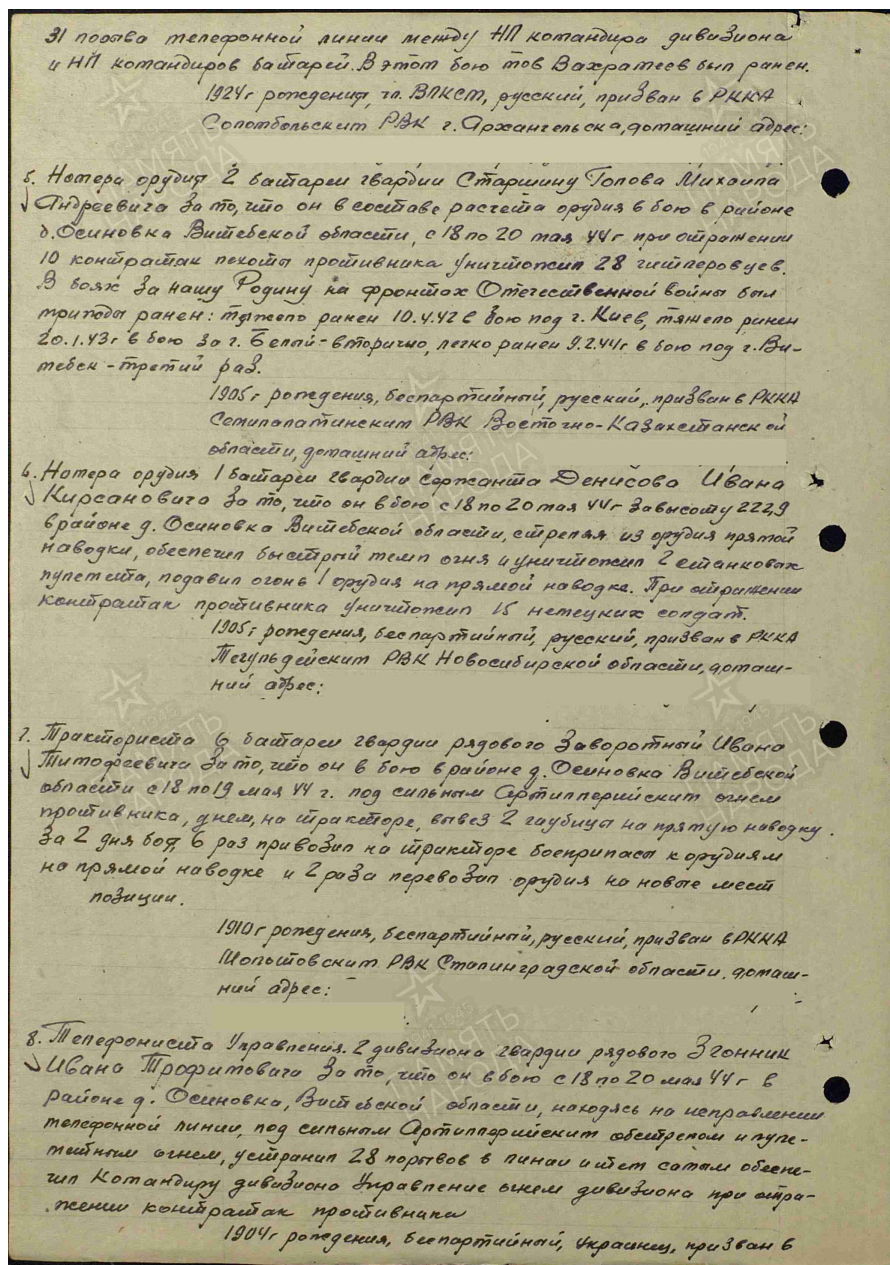 31 порыва телефонной линии между НП командира дивизиона
и НП командиров батарей. В этом бою тов Вахрамеев был ранен.
1924г рождения, чл. ВЛКСМ, русский, призван в РККА
Соломбольским РВК г. Архангельска, домашний адрес:
5. Номера орудия 2 батареи гвардии Старшину Попова Михаила
Андреевича за то, что он в составе расчета орудия в бою в районе
д. Осиновка Витебской области, с 18 по 20 мая 44г при отражении
10 контратак пехоты противника уничтожил 28 гитлеровцев.
В боях за нашу Родину на фронтах Отечественной войны был
трижды ранен: тяжело ранен 10.4.42 в бою под г. Киев, тяжело ранен
20.1.43г в бою за г. Белый-вторично, легко ранен 9.2.44г в бою под г. Ви-
тебск-третий раз.
1905г рождения, беспартийный, русский, призван в РККА
Семипалатинским РВК Восточно-Казахстанской
области, домашний адрес:
6. Номера орудия 1 батареи гвардии Сержанта Денисова Ивана
Кирсановича за то, что он в бою с 18 по 20 мая 44г за высоту 222,9
в районе д. Осиновка Витебской области, стреляя из орудия прямой
наводки, обеспечил быстрый темп огня и уничтожил 2 станковых
пулемета, подавил огонь 1 орудия на прямой наводке. При отражении
контратак противника уничтожил 15 немецких солдат.
1905г рождения, беспартийный, русский, призван в РККА
Тегульдейским РВК Новосибирской области, домаш-
ний адрес:
7. Тракториста 6 батареи гвардии рядового Заворотный Ивана
Тимофеевича за то, что он в бою в районе д. Осиновка Витебской
области с 18 по 19 мая 44 г. под сильным Артиллерийским огнем
противника, днем, на тракторе, вывез 2 гаубицы на прямую наводку.
За 2 дня боя, 6 раз привозил на тракторе боеприпасы к орудиям
на прямой наводке и 2 раза перевозил орудия на новые мест
позиции.
1910г рождения, беспартийный, русский, призван в РККА
РВК Сталинградской области, домаш-
ний адрес:
8. Телефониста Управления 2 дивизиона гвардии рядового Згонник
Ивана Трофимовича за то, что он в бою с 18 по 20 мая 44г в
районе д. Осиновка, Витебской области, находясь на исправлении
телефонной линии, под сильным Артиллерийским обстрелом и пуле-
метным огнем, устранил 28 порывов в линии и тем самым обеспе-
чил Командиру дивизиона Управление огнем дивизиона при отра-
жении контратак противника
1904г рождения, беспартийный, Украинец, призван в